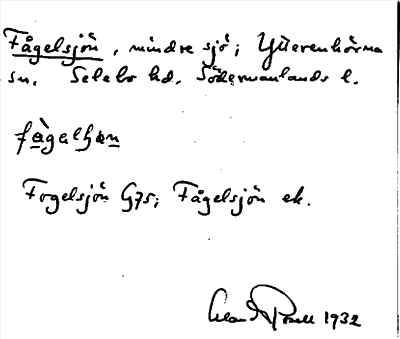 Fågelsjön, mindre sjö; Ytterenhörna
sn. Selebo hd. Södermanlands l.
fàgalhən
Fogelsjön G75; Fågelsjön ek.
1932